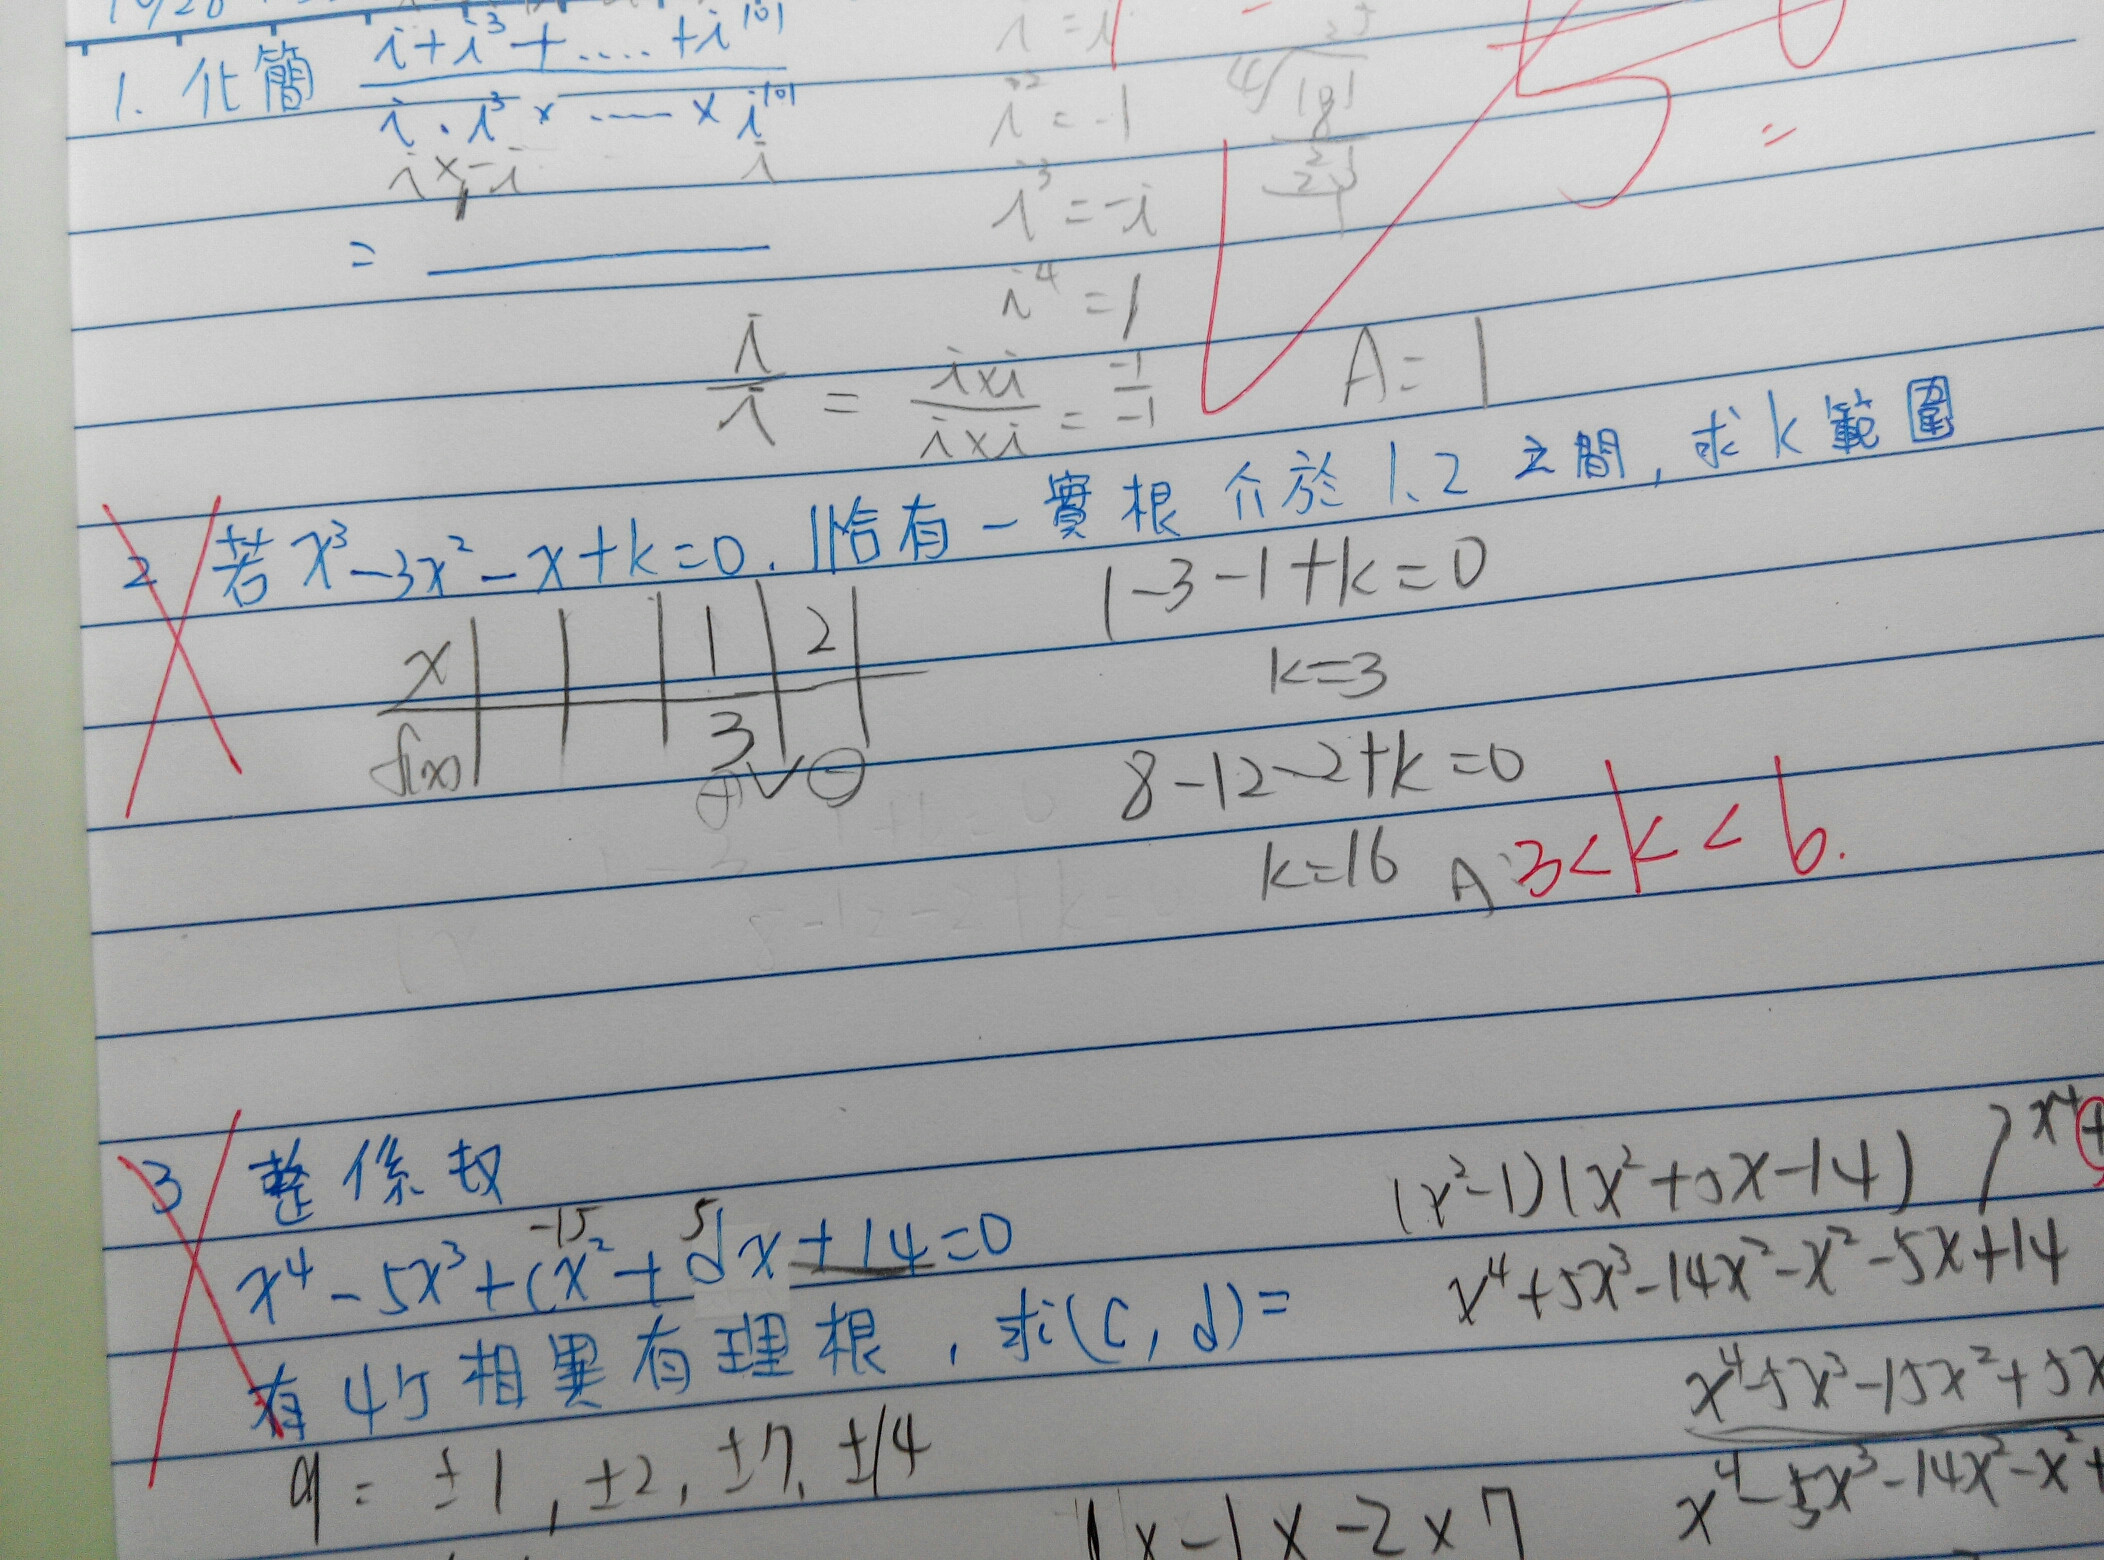 1. 化簡 i+i³+....+i¹⁰¹ / i·i³×.....×i¹⁰¹
i×-i i
=
i=i
i²=-1
i³=-i
i⁴=1
i/i = i×i/i×i = -1/-1
A=1
2 若x³-3x²-x+k=0.恰有一實根介於1、2之間,求k範圍
x 1 2
f(x) 3
⊕∨⊖
1-3-1+k=0
k=3
8-12-2+k=0
k=16
A:3<k<6.
3 整係数
x⁴-5x³+cx²+dx+14=0
-15 5
有4个相異有理根,求(c,d)=
q=±1,±2,±7,±14
(x²-1)(x²+5x-14)
x⁴+5x³-14x²-x²-5x+14
x⁴-5x³-15x²+5x
x⁴-5x³-14x²-x²+
1×-1×-2×7